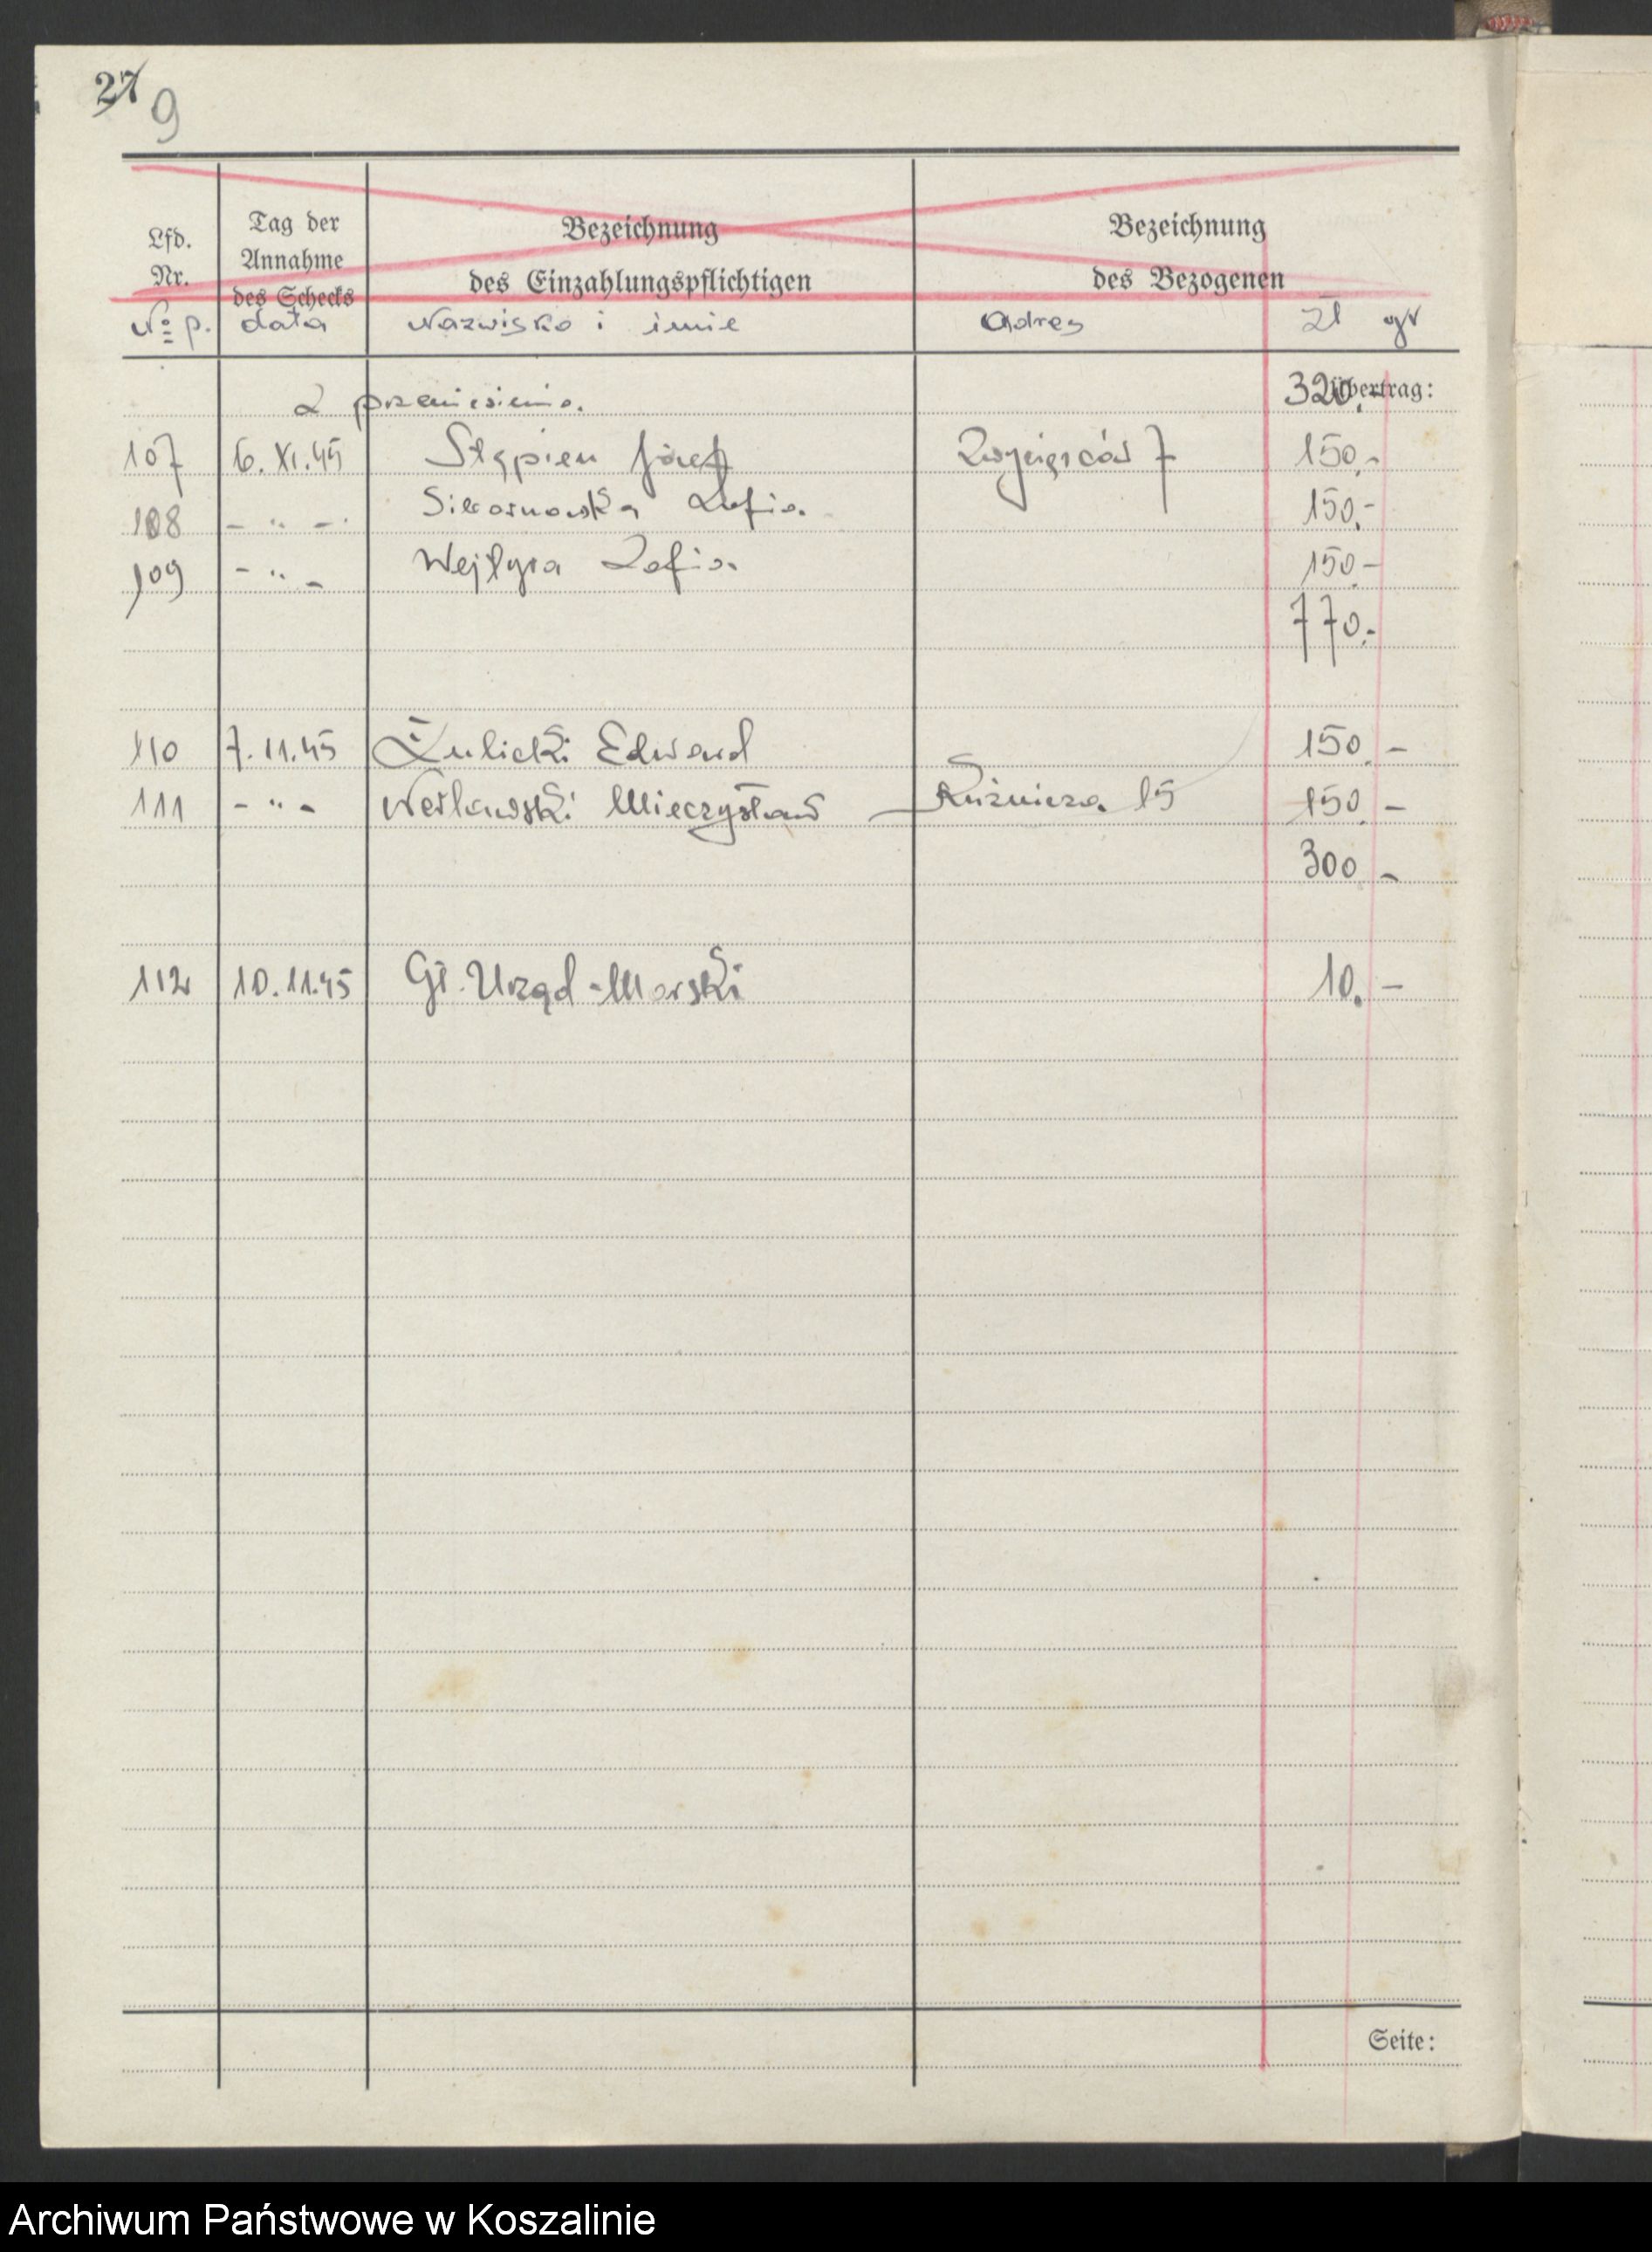 27 9
Lfd. Nr.
Tag der Annahme des Schecks
Bezeichnung des Einzahlungspflichtigen
Bezeichnung des Bezogenen
№ p. data Nazwisko i imie Adres zł gr
Z przeniesienia. 320.- Übertrag:
107 6.XI.45 Stępien Józef Zwycięzców 7 150.-
108 - " - Zofia. 150.-
109 - " - Zofia. 150.-
770.-
110 7.11.45 Żulicki Edward 150.-
111 - " - Mieczysław Kuźnicza 15 150.-
300.-
112 10.11.45 Gł. Urząd Morski 10.-
Seite:
Archiwum Państwowe w Koszalinie